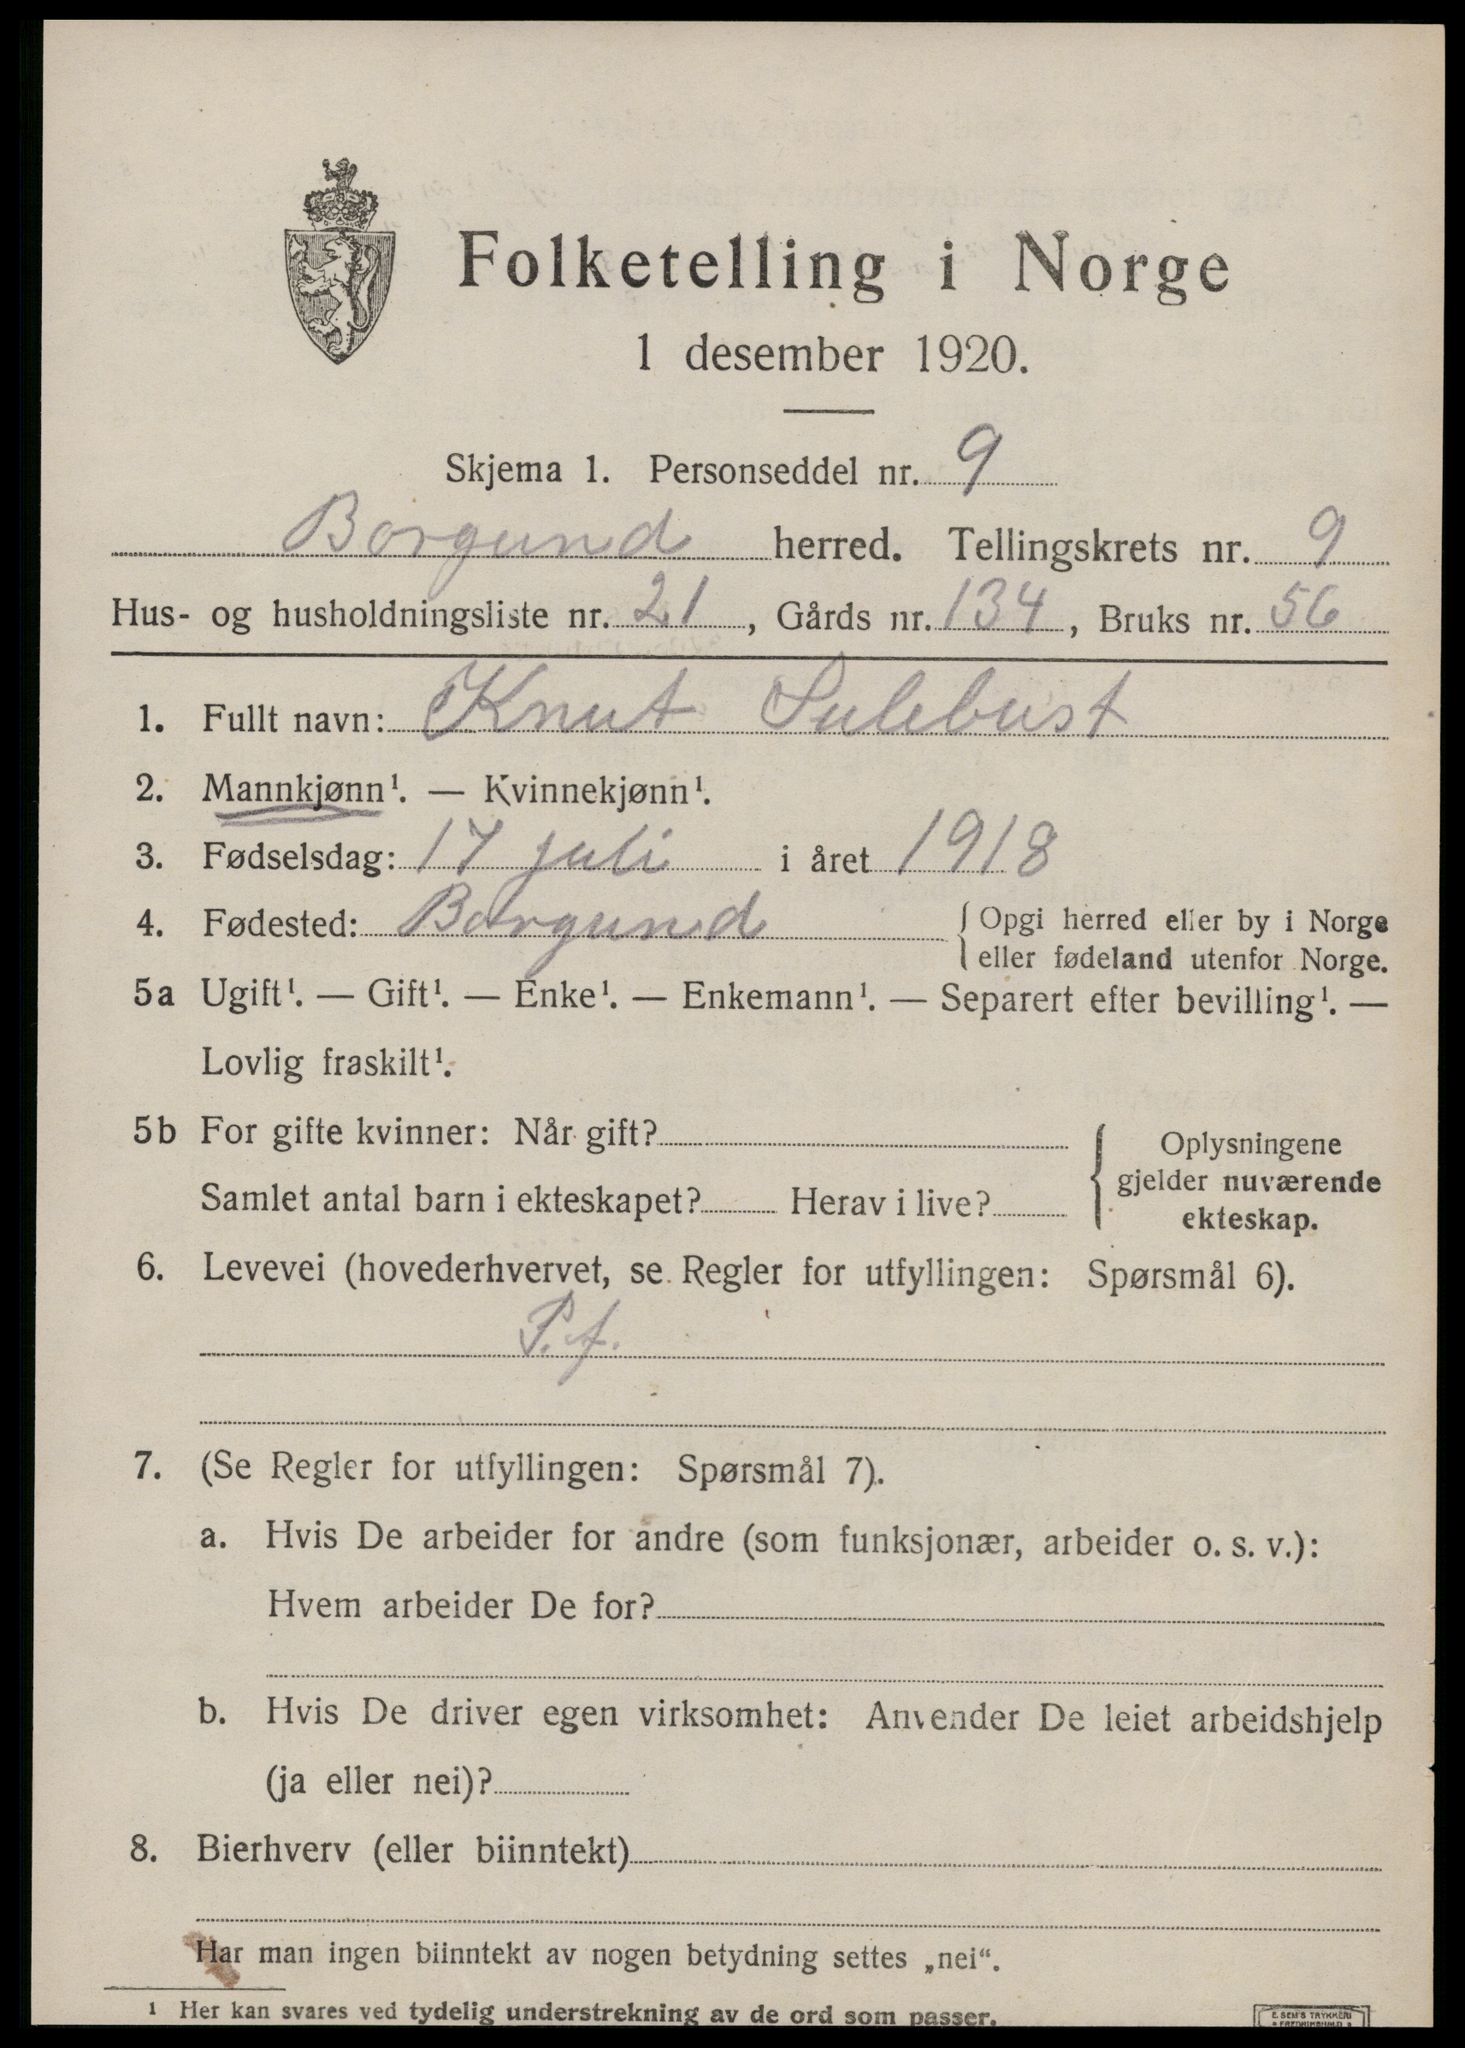 Folketelling i Norge
1 desember 1920.
Skjema 1. Personseddel nr. 9
Borgund herred. Tellingskrets nr. 9
Hus- og husholdningsliste nr. 21, Gårds nr. 134, Bruks nr. 56
1. Fullt navn: Knut Sulebust
2. Mannkjønn¹. — Kvinnekjønn¹.
3. Fødselsdag: 17 juli i året 1918
4. Fødested: Borgund { Opgi herred eller by i Norge
eller fødeland utenfor Norge.
5a Ugift¹. — Gift¹. — Enke¹. — Enkemann¹. — Separert efter bevilling¹. —
Lovlig fraskilt¹.
5b For gifte kvinner: Når gift? { Oplysningene
gjelder nuværende
Samlet antal barn i ekteskapet? Herav i live? ekteskap.
6. Levevei (hovederhvervet, se Regler for utfyllingen: Spørsmål 6).
P.f.
7. (Se Regler for utfyllingen: Spørsmål 7).
a. Hvis De arbeider for andre (som funksjonær, arbeider o. s. v.):
Hvem arbeider De for?
b. Hvis De driver egen virksomhet: Anvender De leiet arbeidshjelp
(ja eller nei)?
8. Bierhverv (eller biinntekt)
Har man ingen biinntekt av nogen betydning settes „nei“.
¹ Her kan svares ved tydelig understrekning av de ord som passer.
E. SEM'S TRYKKERI
FREDRIKSHALD